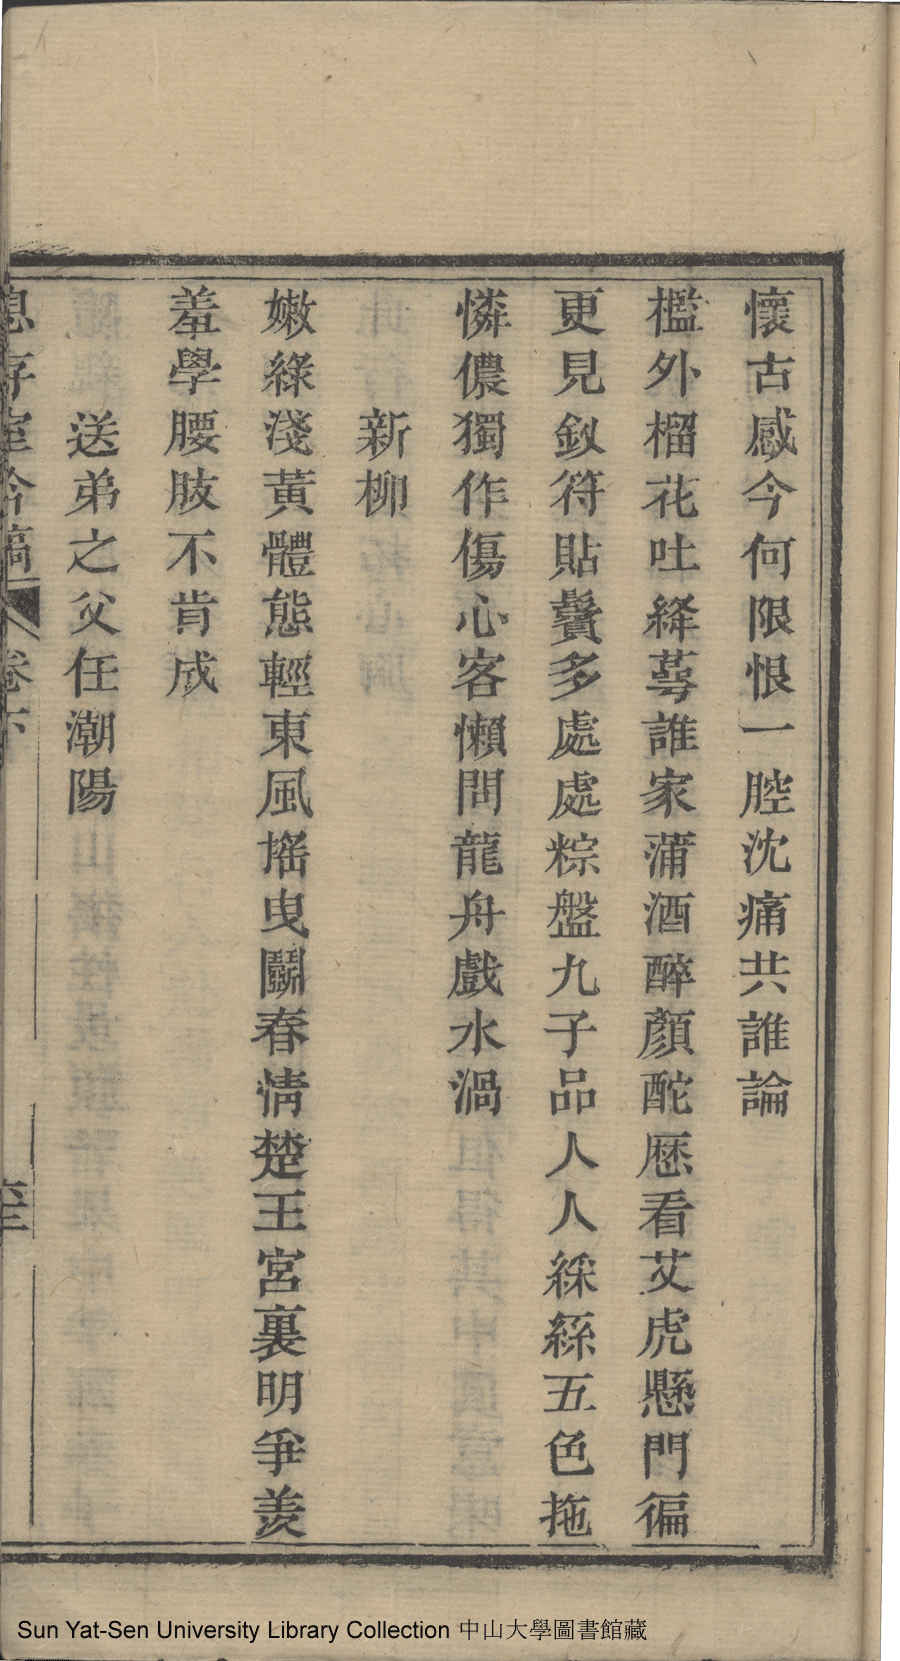 懷古感今何限恨一腔沈痛共誰論
檻外榴花吐絳萼誰家蒲酒醉顏酡厯看艾虎懸門徧
更見釵符貼鬢多處處粽盤九子品人人綵絲五色拖
憐儂獨作傷心客懶問龍舟戲水渦
新柳
嫩綠淺黃體態輕東風搖曳鬭春情楚王宮裏明爭羨
羞學腰肢不肯成
送弟之父任潮陽
息存室吟稿 卷六
Sun Yat-Sen University Library Collection 中山大學圖書館藏